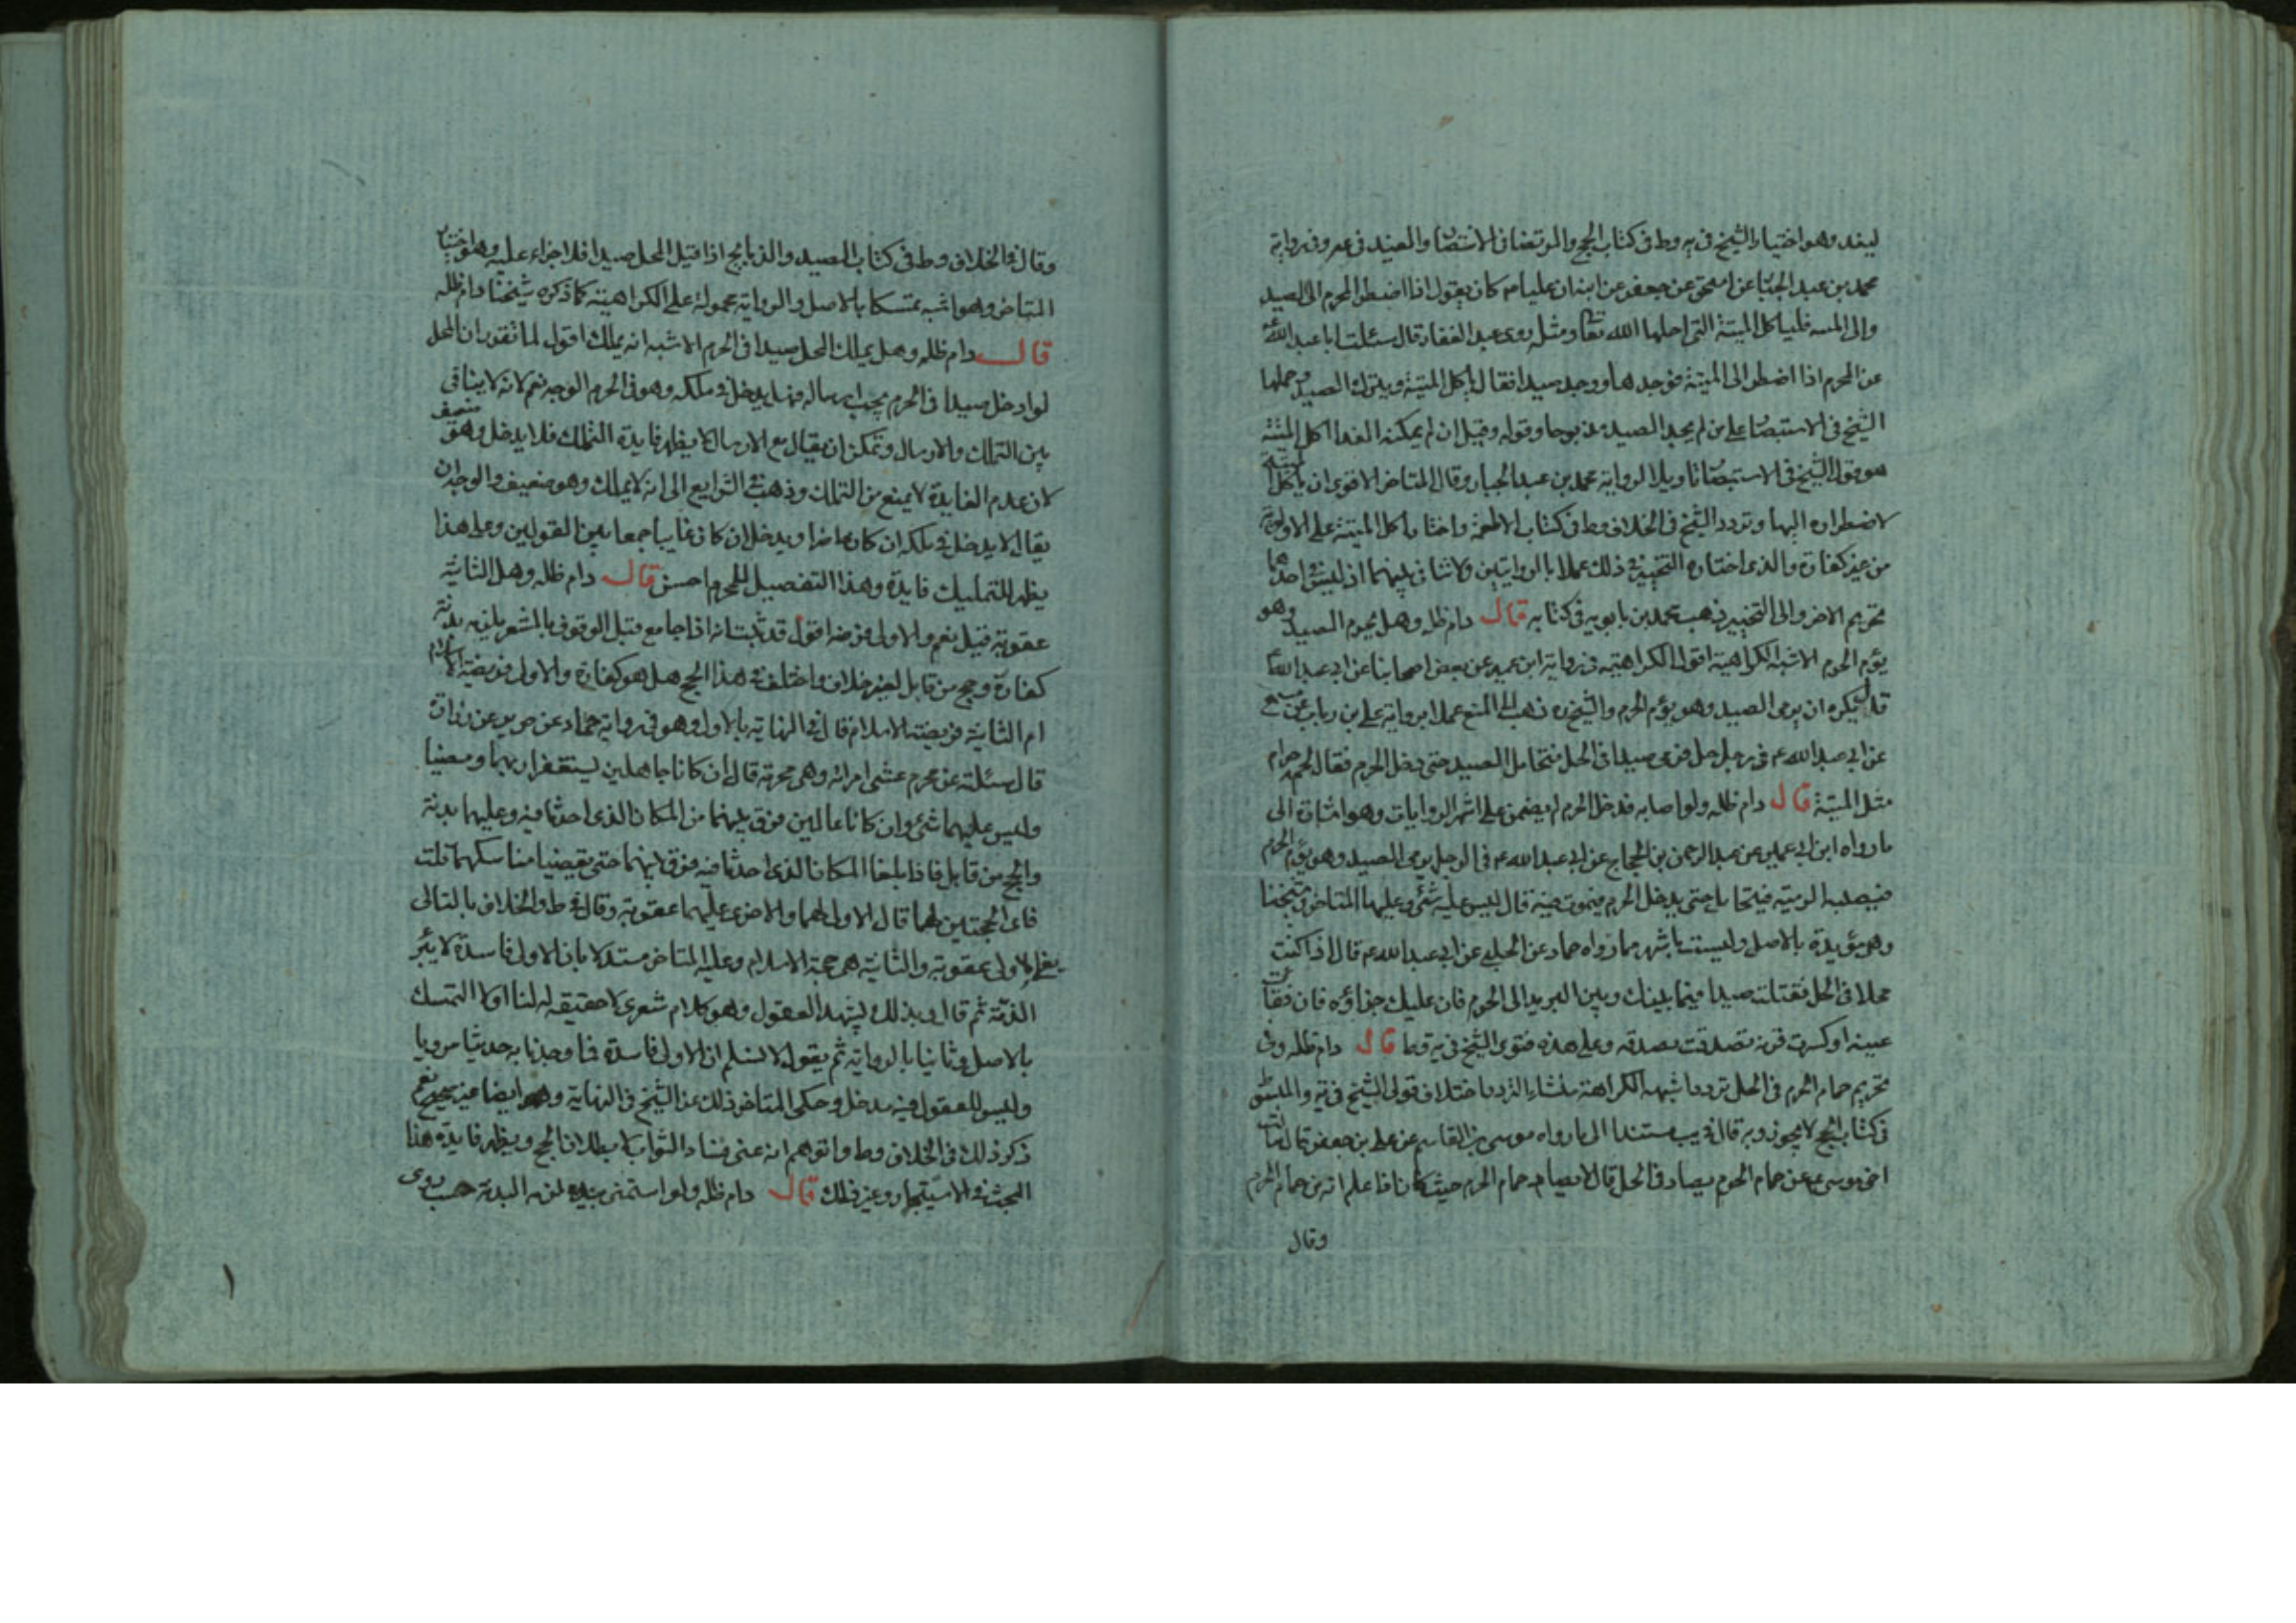 ليفد وهو اختيار الشيخ في يه وط في كتاب الحج والمرتضى في الانتصار والمفيد في عه وفي رواية
محمد بن عبد الجبار عن اسحق عن جعفر عن ابيه ان عليا ع كان يقول اذا اضطر المحرم الى الصيد
والى الميتة فلياكل الميتة التي احلها الله تعالى ومثله روى عبد الغفار قال سئلت ابا عبد الله ع
عن المحرم اذا اضطر الى الميتة فوجدها ووجد صيدا فقال ياكل الميتة ويترك الصيد وحملها
الشيخ في الاستبصار على من لم يجد الصيد مذبوحا وقوله وقيل ان لم يمكنه الفدا اكل الميتة
هو قول الشيخ في الاستبصار تاويلا لرواية محمد بن عبد الجبار وقال المتاخر الاقوى ان ياكل الميتة
لاضطراره اليها وتردد الشيخ في الخلاف وط في كتاب الاطعمة واختار اكل الميتة على الاولوية
من غير كفارة والذى اختاره التخيير في ذلك عملا بالروايتين ولا تنافى بينهما اذ ليس في احدهما
تحريم الاخر والى التخيير ذهب محمد بن بابويه في كتابه قال دام ظله وهل يحرم الصيد وهو
يؤم الحرم الاشبه الكراهية اقول الكراهية في رواية ابن ابي عمير عن بعض اصحابنا عن ابي عبد الله ع
قال يكره ان يرمى الصيد وهو يؤم الحرم والشيخ ره ذهب الى المنع عملا برواية على بن رياب عن مسمع
عن ابي عبد الله ع في رجل حل فرمى صيدا في الحل فتحامل الصيد حتى دخل الحرم فقال لحمه حرام
مثل الميتة قال دام ظله ولو اصابه فدخل الحرم لم يضمن على اشهر الروايات وهو اشارة الى
ما رواه ابن ابي عمير عن عبد الرحمن بن الحجاج عن ابي عبد الله ع في الرجل يرمى الصيد وهو يؤم الحرم
فيصيبه الرمية فيتحامل حتى يدخل الحرم فيموت فيه قال ليس عليه شئ وعليها المتاخر وشيخنا
وهي مؤيدة بالاصل وليست باشهر مما رواه حماد عن الحلبي عن ابي عبد الله ع قال اذا كنت
محلا في الحل فقتلت صيدا فيما بينك وبين البريد الى الحرم فان عليك جزاؤه فان فقأت
عينه او كسرت قرنه تصدقت بصدقه وعلى هذه فتوى الشيخ في يه وط قال دام ظله وفي
تحريم حمام الحرم في الحل تردد اشبهه الكراهة منشاء التردد اختلاف قولى الشيخ في يه والمبسوط
في كتاب الحج لا يجوز وبه قال في يب مستندا الى ما رواه موسى بن القاسم عن على بن جعفر قال سالت
اخي موسى ع عن حمام الحرم يصاد في الحل قال لا يصاد حمام الحرم حيث كان اذا علم انه من حمام الحرم
وقال
وقال في الخلاف وط في كتاب الصيد والذبايح اذا قتل المحل صيدا فلا جزاء عليه وهو اختيار
المتاخر وهو اشبه تمسكا بالاصل والرواية محمولة على الكراهية كما ذكره شيخنا دام ظله
قال دام ظله وهل يملك المحل صيدا في الحرم الاشبه انه يملك اقول لما تقرر ان المحل
لو ادخل صيدا في الحرم يجب ارساله فهل يدخل في ملكه وهو في الحرم الوجه نعم لانه لا ينافى
بين التملك والارسال ويمكن ان يقال مع الارسال لا يظهر فايدة التملك فلا يدخل وهو ضعيف
لان عدم الفايدة لا يمنع من التملك وذهب في الشرايع الى انه لا يملك وهو ضعيف والوجه ان
يقال لا يدخل في ملكه ان كان حاضرا ويدخل ان كان غايبا جمعا بين القولين وعلى هذا
يظهر للتمليك فايدة وهذا التفصيل للمحرم احسن قال دام ظله وهل الثانية
عقوبة قيل نعم والاولى فرضه اقول قد ثبت انه اذا جامع قبل الوقوف بالمشعر يلزمه بدنة
كفارة وحج من قابل لغير خلاف واختلف في هذا الحج هل هو كفارة والاولى فريضة الاسلام
ام الثانية فريضة الاسلام قال في النهاية بالاول وهو في رواية حماد عن حريز عن زرارة
قال سئلته عن محرم غشى امراته وهي محرمة قال ان كانا جاهلين يستغفرا ربهما ومضيا
وليس عليهما شئ وان كانا عالمين فرق بينهما من المكان الذى احدثا فيه وعليهما بدنة
والحج من قابل فاذا بلغا المكان الذى احدثا فيه فرق بينهما حتى يقضيا مناسكهما قلت
فاى الحجتين لهما قال الاولى لهما والاخرى عليهما عقوبة وقال في ط والخلاف بالثانى
يعنى الاولى عقوبة والثانية هي حجة الاسلام وعليه المتاخر مستدلا بان الاولى فاسدة لا يبرء
الذمة ثم قال وبذلك يشهد العقول وهو كلام شعرى لا حقيقة له لنا اولا التمسك
بالاصل وثانيا بالرواية ثم يقول لا نسلم ان الاولى فاسدة فما وجدنا به حديثا مرويا
وليس للعقول فيه مدخل وحكى المتاخر ذلك عن الشيخ في النهاية وهو ايضا غير صحيح نعم
ذكر ذلك في الخلاف وط واتوهم انه عنى فساد الثواب لا بطلان الحج ويظهر فايدة هذا
البحث في الاستيجار وغير ذلك قال دام ظله ولو استمنى بيده لزمه البدنة حسب روى